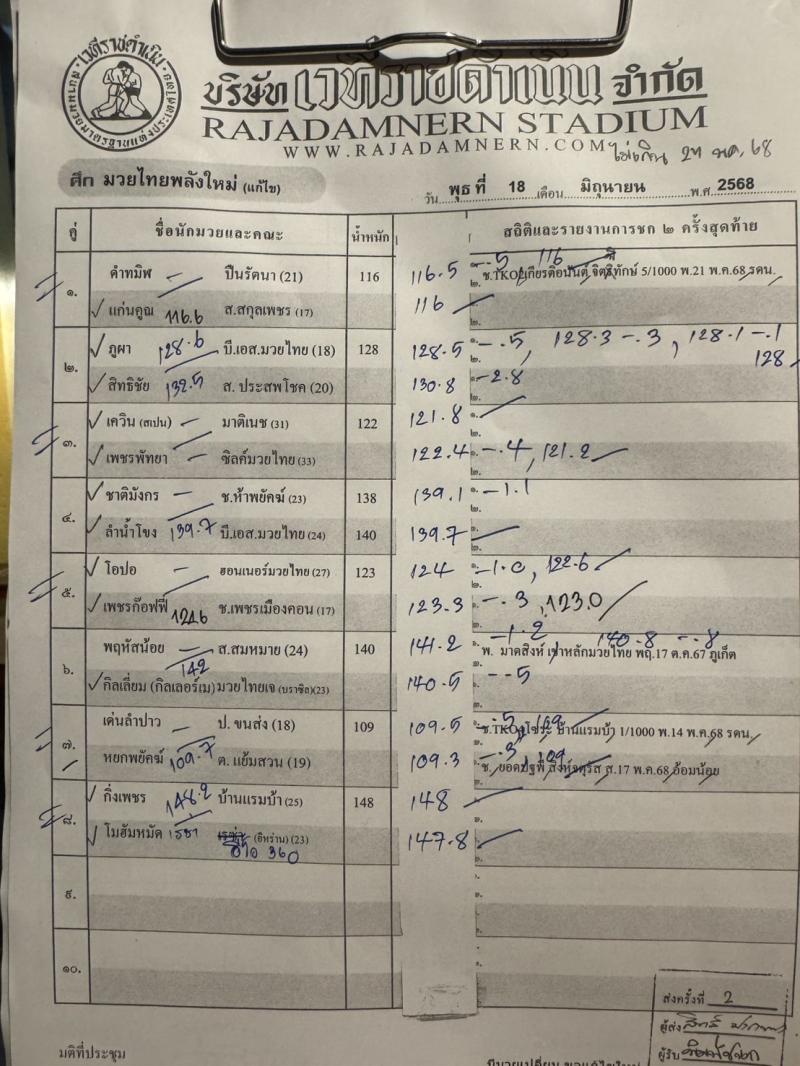 เวทีราชดำเนิน
บริษัท เวทีราชดำเนิน จำกัด
RAJADAMNERN STADIUM
WWW.RAJADAMNERN.COM
ศึก มวยไทยพลังใหม่ (แก้ไข)
วัน พุธ ที่ 18 เดือน มิถุนายน พ.ศ. 2568
คู่ ชื่อนักมวยและคณะ น้ำหนัก สถิติและรายงานการชก ๒ ครั้งสุดท้าย
๑. คำทมิฬ ปืนรัตนา (21) 116 116.5 -.5 116
แก่นคูณ 116.6 ส.สกุลเพชร (17) 116
๒. ภูผา 128.6 บี.เอส.มวยไทย (18) 128 128.5 -.5, 128.3 -.3, 128.1 -.1 128
สิทธิชัย 132.5 ส. ประสพโชค (20) 130.8 -2.8
๓. เควิน (สเปน) มาติเนซ (31) 122 121.8
เพชรพัทยา ซิลค์มวยไทย (33) 122.4 -.4, 121.2
๔. ชาติมังกร ช.ห้าพยัคฆ์ (23) 138 139.1 -1.1
ลำน้ำโขง 139.7 บี.เอส.มวยไทย (24) 140 139.7
๕. โอปอ ฮอนเนอร์มวยไทย (27) 123 124 -1.0, 122.6
เพชรก๊อฟฟี่ 124.6 ช.เพชรเมืองคอน (17) 123.3 -.3, 123.0
๖. พฤหัสน้อย ส.สมหมาย (24) 140 141.2 -1.2 140.8 -.8
พ. มาดสิงห์ เปาหลักมวยไทย พฤ.17 ต.ค.67 ภูเก็ต
142
กิลเลี่ยม (กิลเลอร์เม) มวยไทยเจ (บราซิล)(23) 140.5 -.5
๗. เด่นลำปาว ป. ขนส่ง (18) 109 109.5 -.5 109
บ้านแรมบ้า 1/1000 พ.14 พ.ค.68 รดน.
หยกพยัคฆ์ 109.7 ต. แย้มสวน (19) 109.3 -.3 109
ส.17 พ.ค.68 อ้อมน้อย
๘. กิ่งเพชร 148.2 บ้านแรมบ้า (25) 148 148
โมฮัมหมัด (อิหร่าน) (23) 147.8
๙.
๑๐.
ส่งครั้งที่ 2
ผู้ส่ง
ผู้รับ
มติที่ประชุม